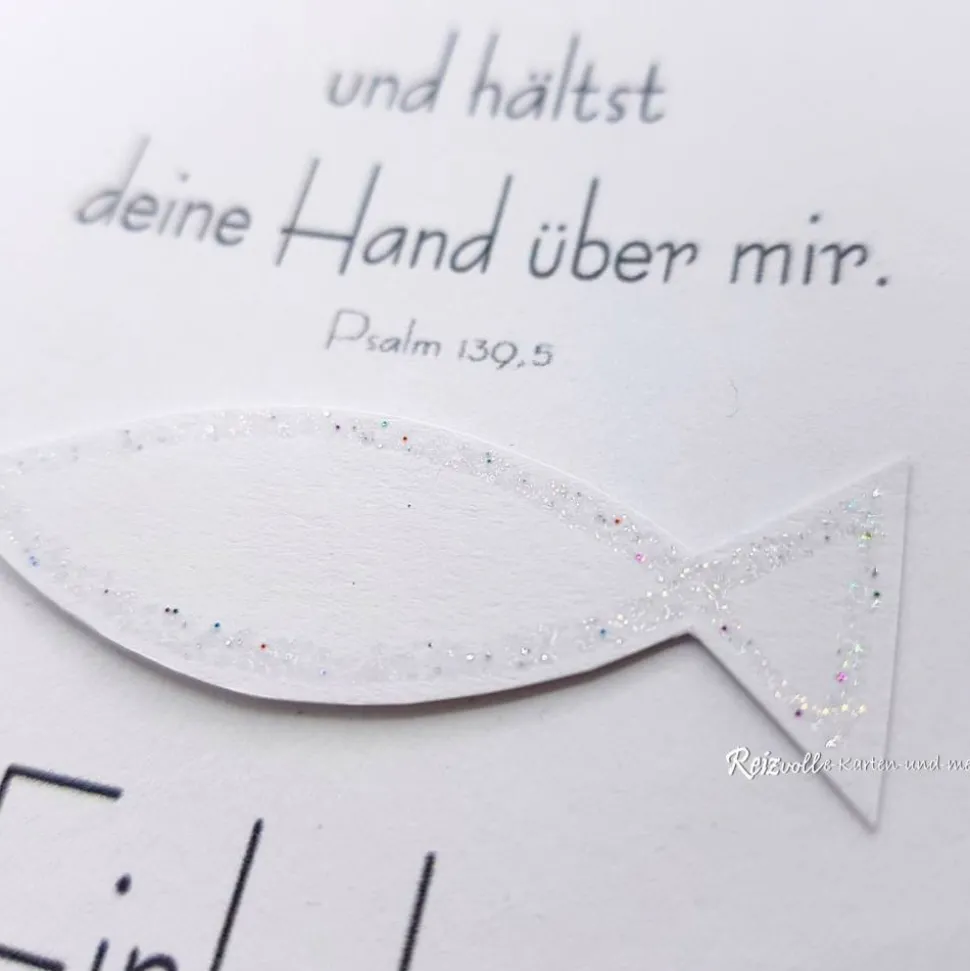 und hältst
deine Hand über mir.
Psalm 139,5
Reizvolle Karten und